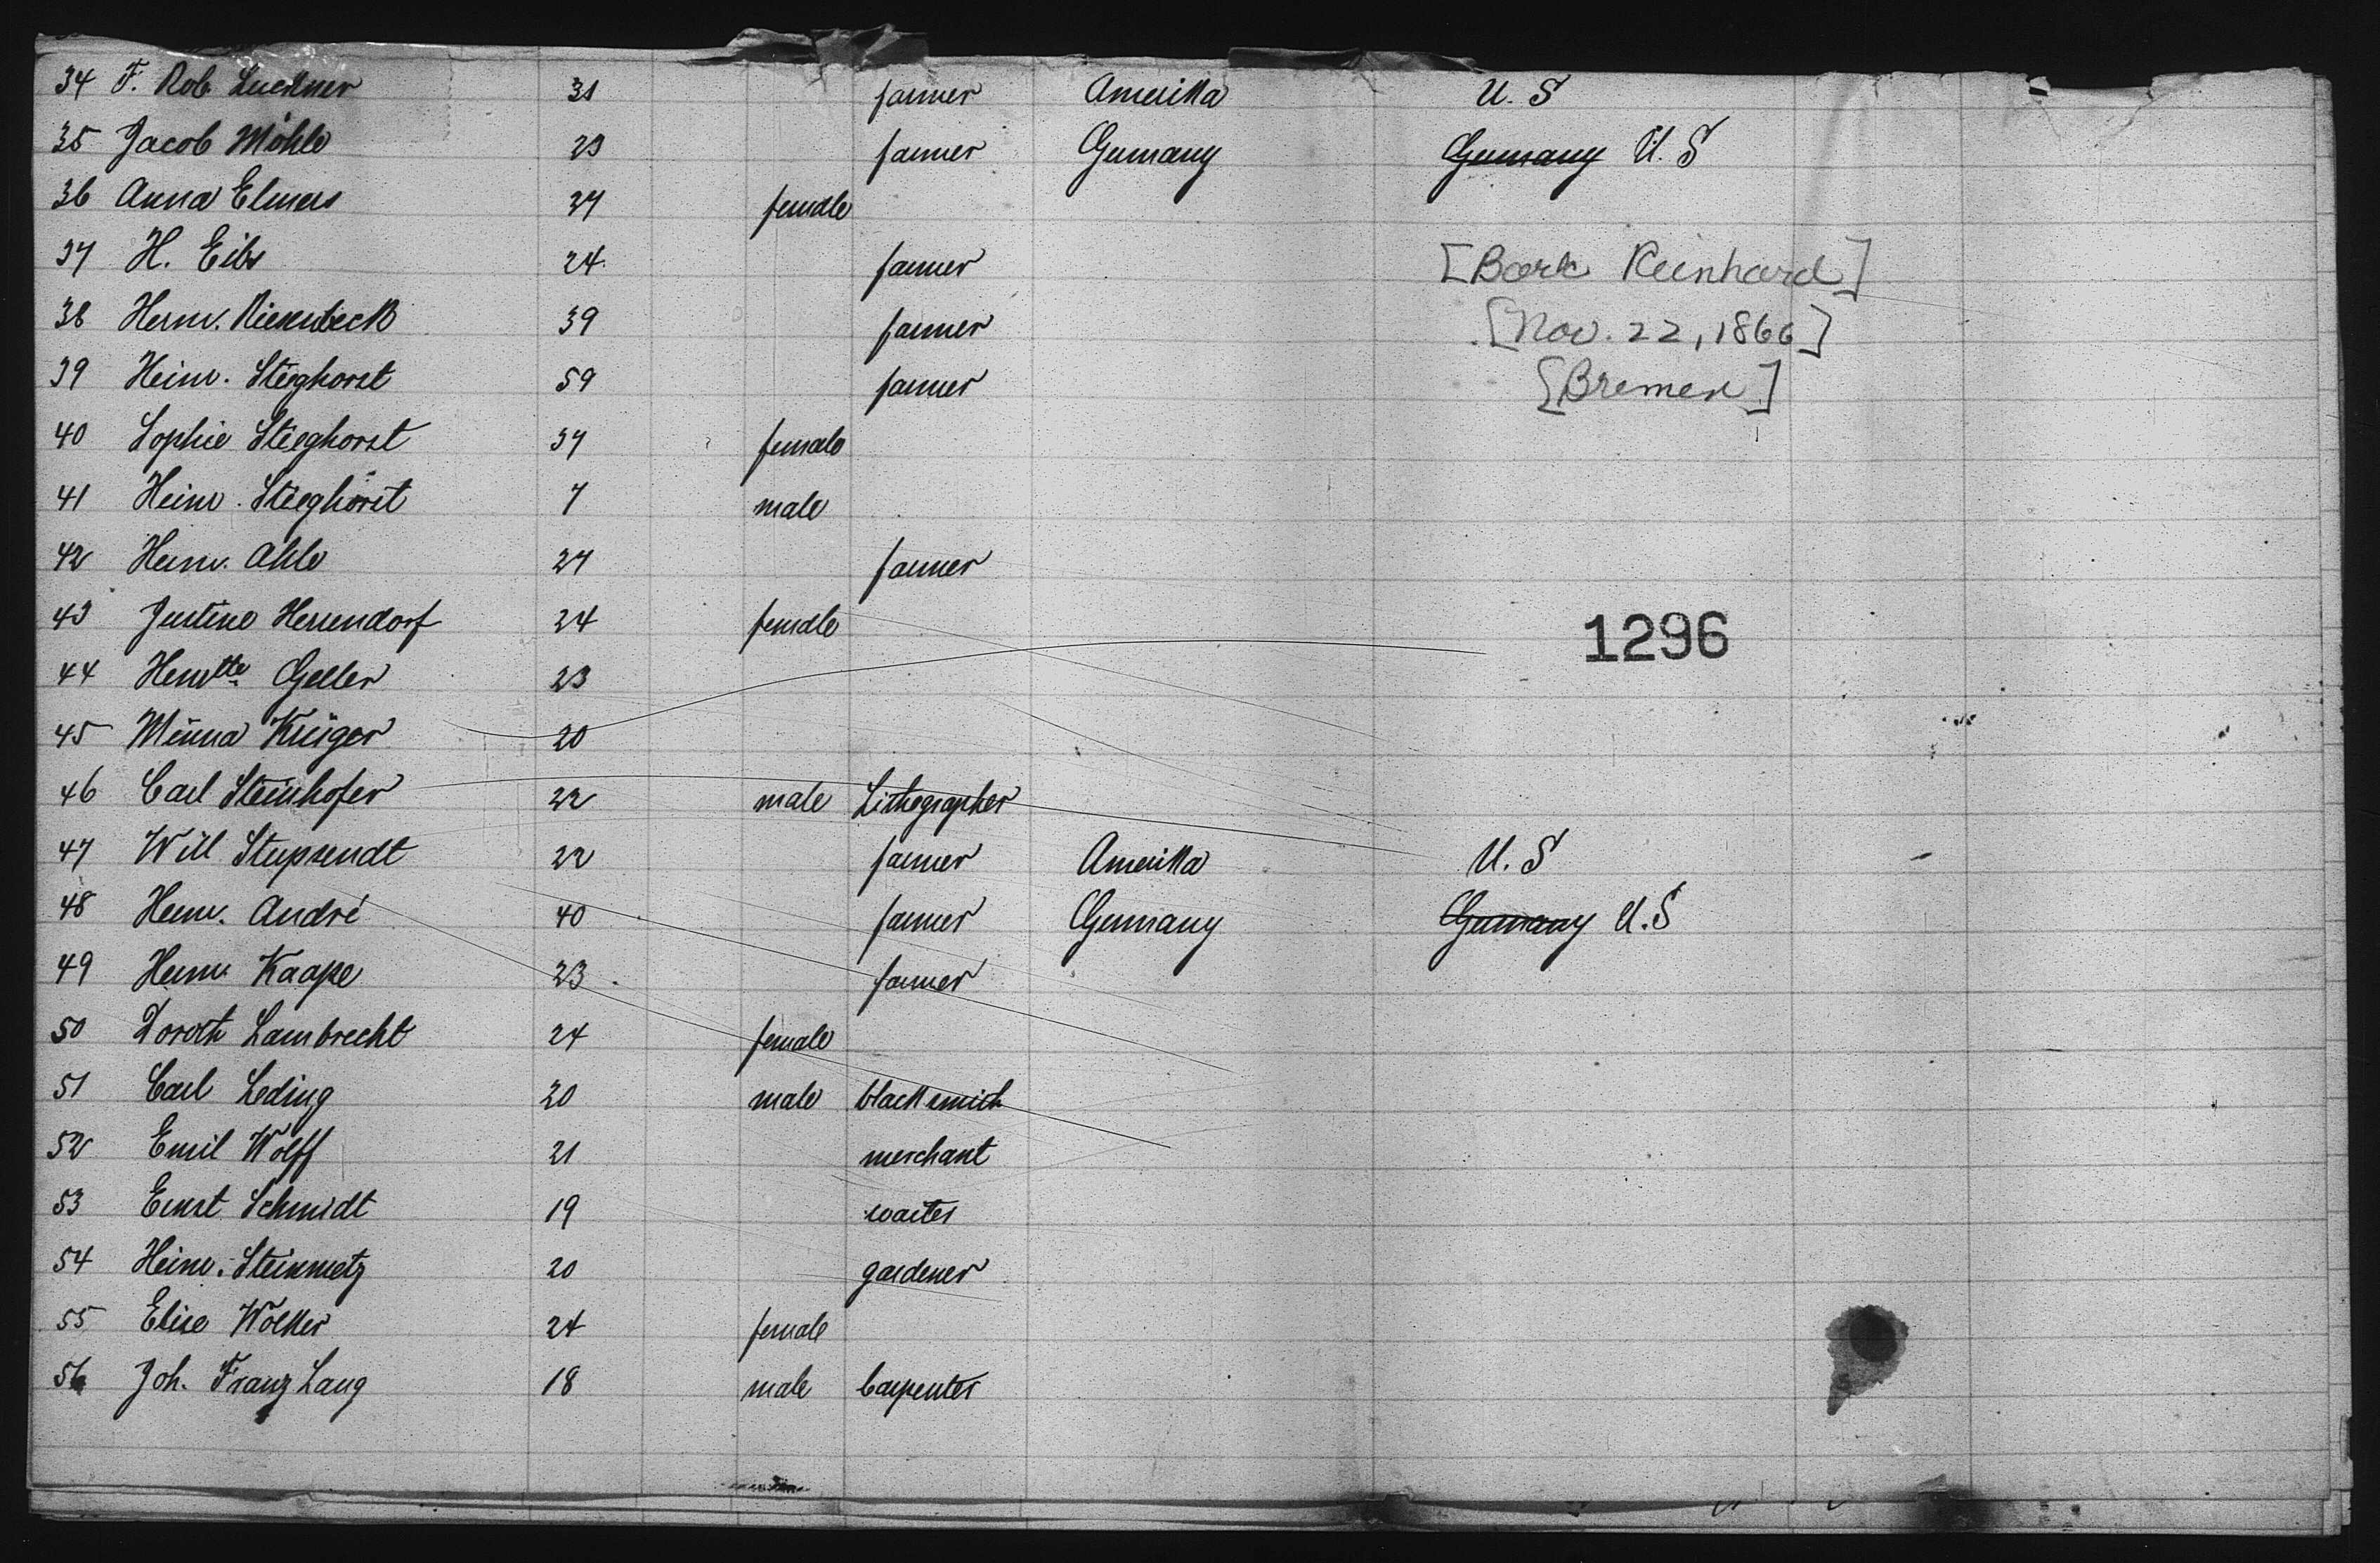 34 F. Rob. Luckner 31 farmer Amerika U. S
35 Jacob Möhle 23 farmer Germany Germany U. S
36 Anna Elmers 37 female
37 H. Eibs 24 farmer [Bark Reinhard]
38 Herm. 39 farmer [Nov. 22, 1866]
39 Heinr. Steghorst 59 farmer [Bremen]
40 Sophie Stieghorst 37 female
41 Heinr. Stieghorst 7 male
42 Herm. Ahle 27 farmer
43 Justine Herrendorf 24 female 1296
44 Henrtte Geller 23
45 Minna Krüger 20
46 Carl Steinhofer 22 male Lithographer
47 Will 22 farmer Amerika U. S
48 Heinr. André 40 farmer Germany Germany U. S
49 Herm. Kaape 23 farmer
50 Doroth Lambrecht 24 female
51 Carl Leding 20 male blacksmith
52 Emil Wolff 21 merchant
53 Ernst Schmidt 19 waiter
54 Heinr. Steinmetz 20 gardener
55 Elise Wölker 24 female
56 Joh. Franz Lang 18 male Carpenter